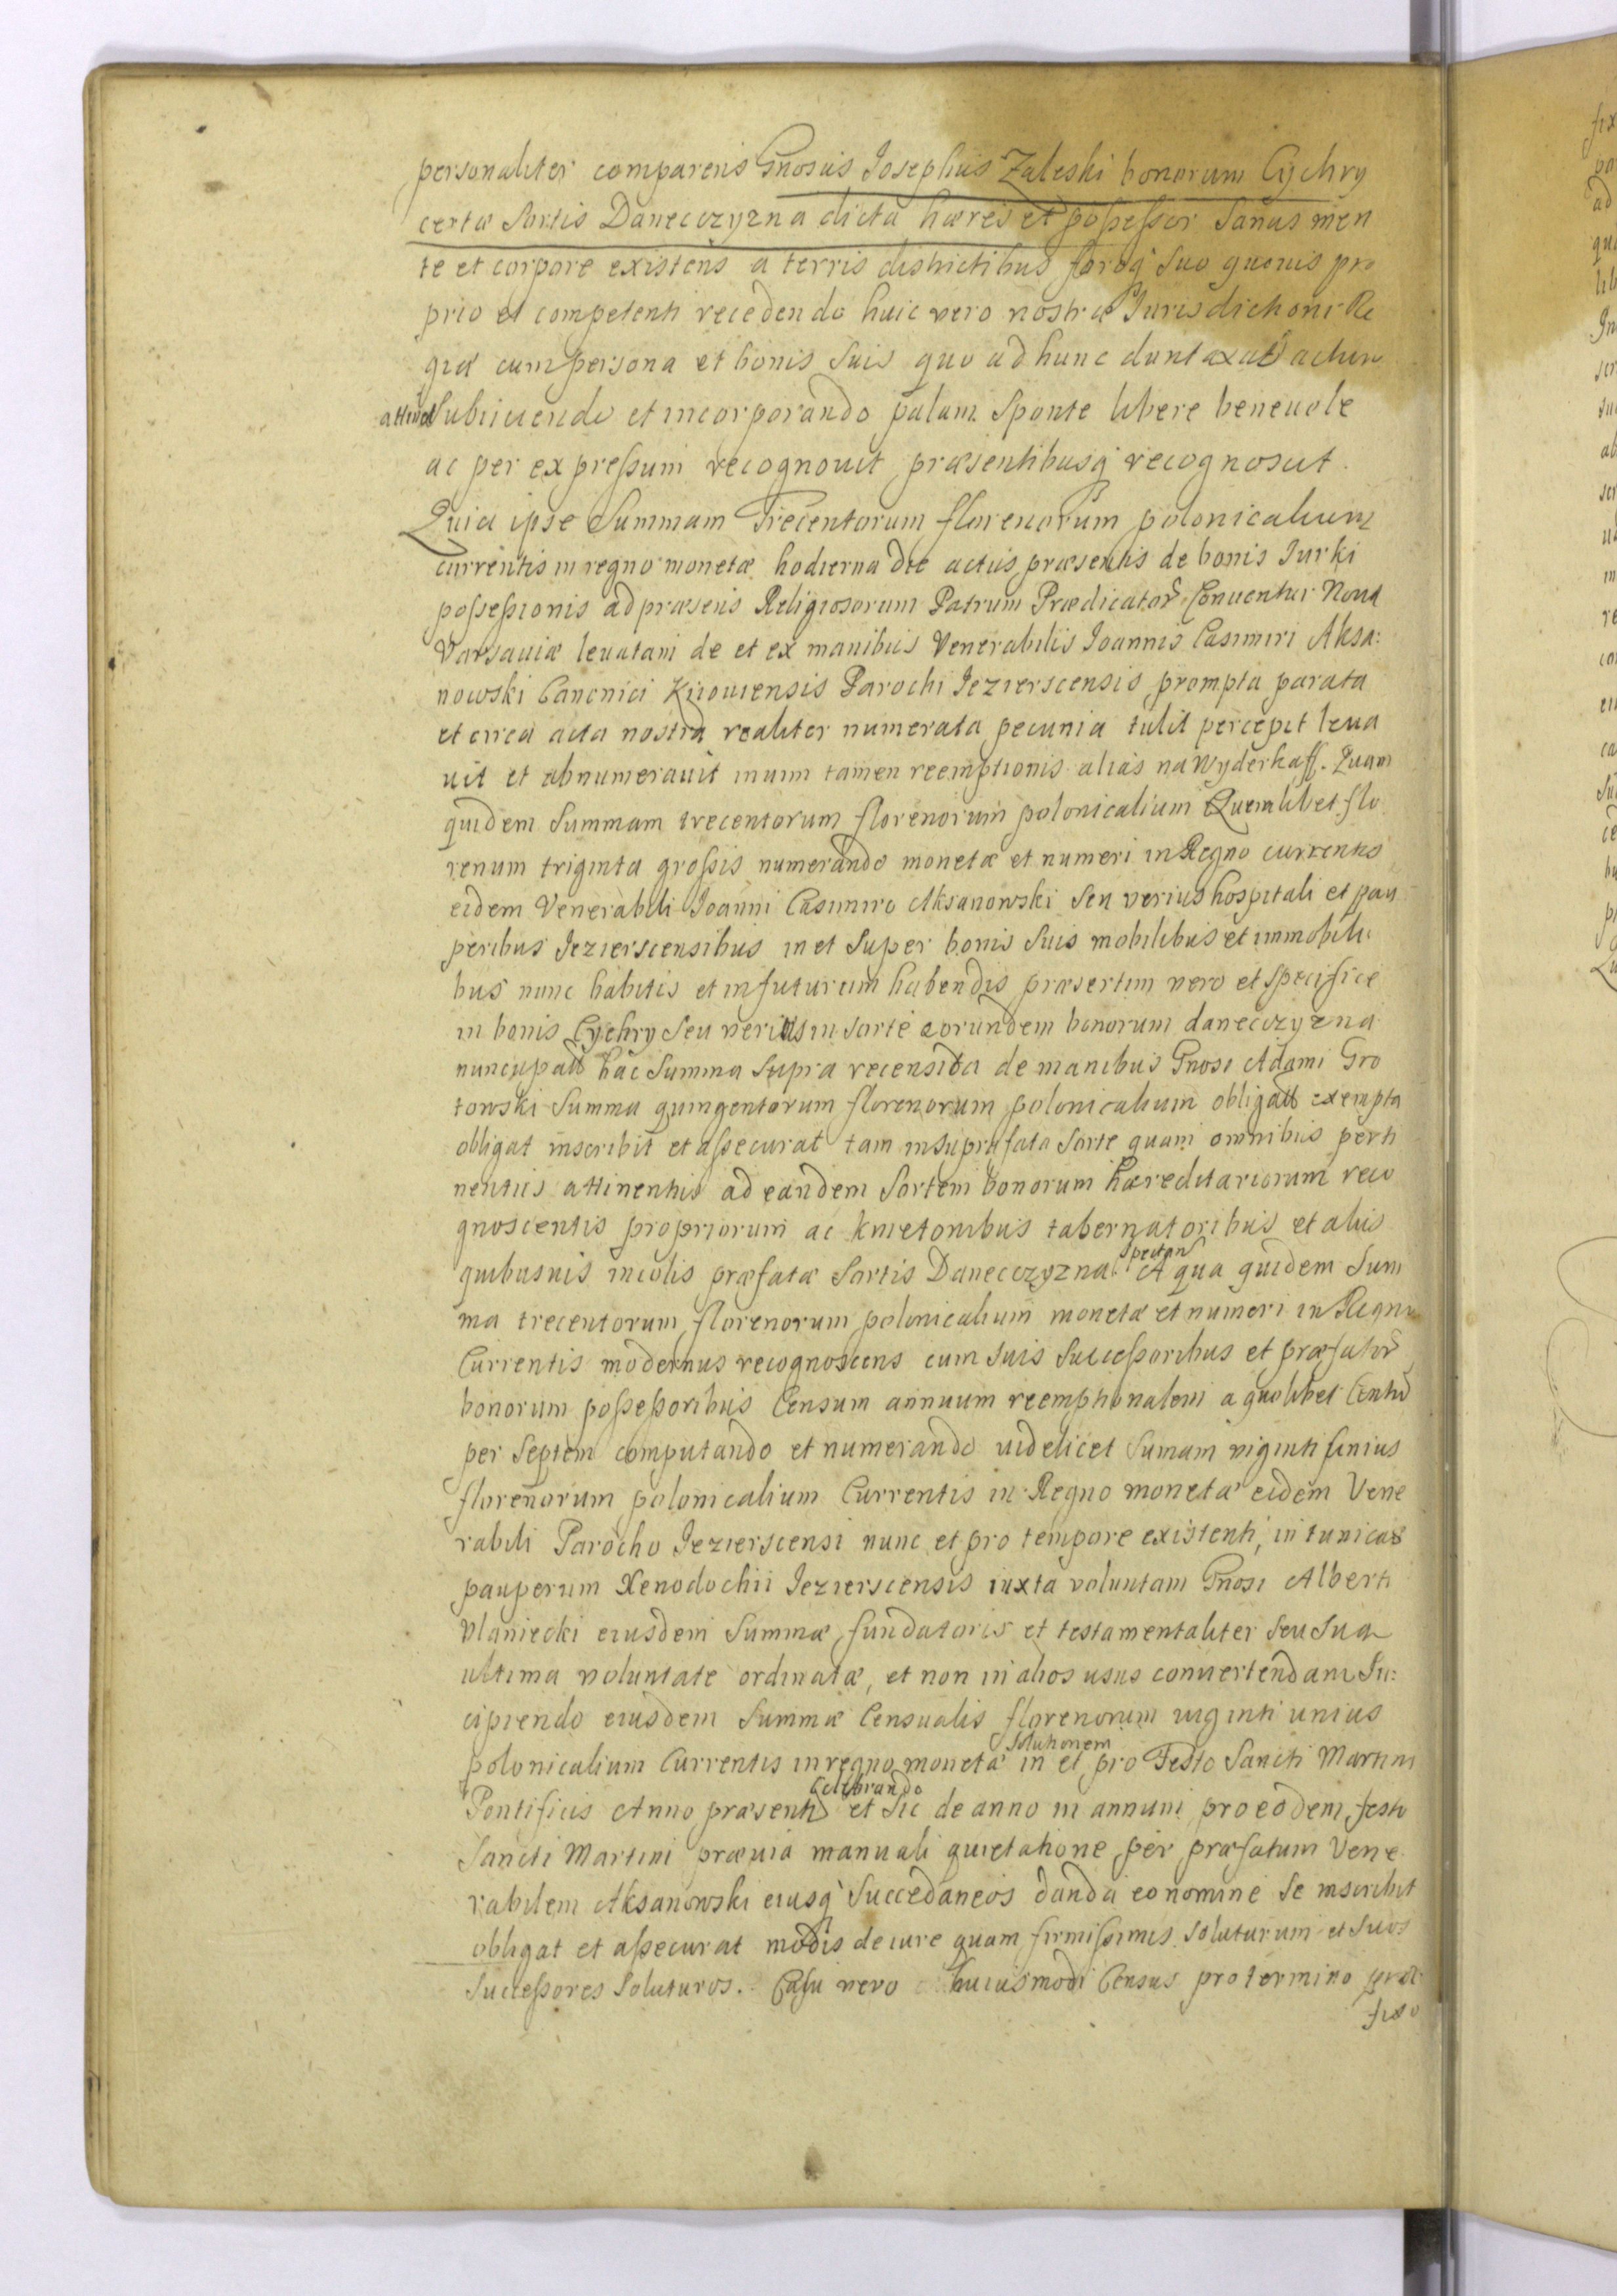 personaliter comparens Gnosus Josephus Zaleski bonorum Cychry
certæ Sortis Daneczyzna dicta hæres et possessor Sanus men
te et corpore existens a terris districtibus foroq̃ suo quovis pro
prio et competenti recedendo huic vero nostræ Jurisdictioni Re
giæ cum persona et bonis suis quo ad hunc duntaxat actum
attinet Subiiciendo et incorporando palam Sponte libere benevole
ac per expressum recognovit præsentibusq̃ recognoscit.
Quia ipse Summam Trecentorum florenorum polonicalium
currentis in regno monetæ hodierna die actus præsentis de bonis Jurki
possessionis ad præsens Religiosorum Patrum Prædicator̃ Conventus Nova
Varsaviæ levatam de et ex manibus Venerabilis Joannis Casimiri Aksa:
nowski Canonici Kijoviensis Parochi Jezierscensis prompta parata
et circa acta nostra realiter numerata pecunia tulit percepit leva
vit et abnumeravit in vim tamen reemptionis alias na Wyderkaff. Quam
quidem Summam trecentorum florenorum polonicalium Quemlibet flo
renum triginta grossis numerando monetæ et numeri in Regno currentis
eidem Venerabili Joanni Casimiro Aksanowski Seu verius hospitali et pau
peribus Jezierscensibus in et Super bonis Suis mobilibus et immobili
bus nunc habitis et in futurum habendis præsertim vero et specifice
in bonis Cychry Seu verius in Sorte eorundem bonorum daneczyzna
nuncupatt̃ hac Summa Supra recensita de manibus Gnosi Adami Gro
towski Summa quingentorum florenorum polonicalium obligatt̃ exempta
obligat inscribit et assecurat tam in suprafata Sorte quam omnibus perti
nentiis attinentiis ad eandem Sortem bonorum hæreditariorum reco
gnoscentis propriorum ac kmetonibus tabernatoribus et aliis
quibusvis incolis præfatæ Sortis Daneczyzna spectan̄. A qua quidem Sum
ma trecentorum florenorum polonicalium monetæ et numeri in Regno
Currentis modernus recognoscens cum suis Successoribus et præfator̃
bonorum possessoribus Censum annuum reemptionalem a quolibet Centũ
per Septem computando et numerando videlicet Sumam viginti unius
florenorum polonicalium Currentis in Regno monetæ eidem Vene
rabili Parocho Jezierscensi nunc et pro tempore existenti, in tunicas
pauperum Xenodochii Jezierscensis iuxta voluntam Gnosi Alberti
Vlaniecki eiusdem Summæ fundatoris et testamentaliter Seu Sua
ultima voluntate ordinatæ, et non in alios usus convertendam Su:
cipiendo eiusdem Summæ Censualis florenorum viginti unius
polonicalium Currentis in regno monetæ solutionem in et pro Festo Sancti Martini
Pontificis Anno præsenti Celebrando et Sic de anno in annum pro eodem festo
Sancti Martini prævia manuali quietatione per præfatum Vene
rabilem Aksanowski eiusq̃ Succedaneos danda eo nomine Se inscribit
obligat et assecurat modis de iure quam firmissimis Soluturum et Suos
Successores Soluturos. Casu vero huiusmodi Census pro termino præ
fixo